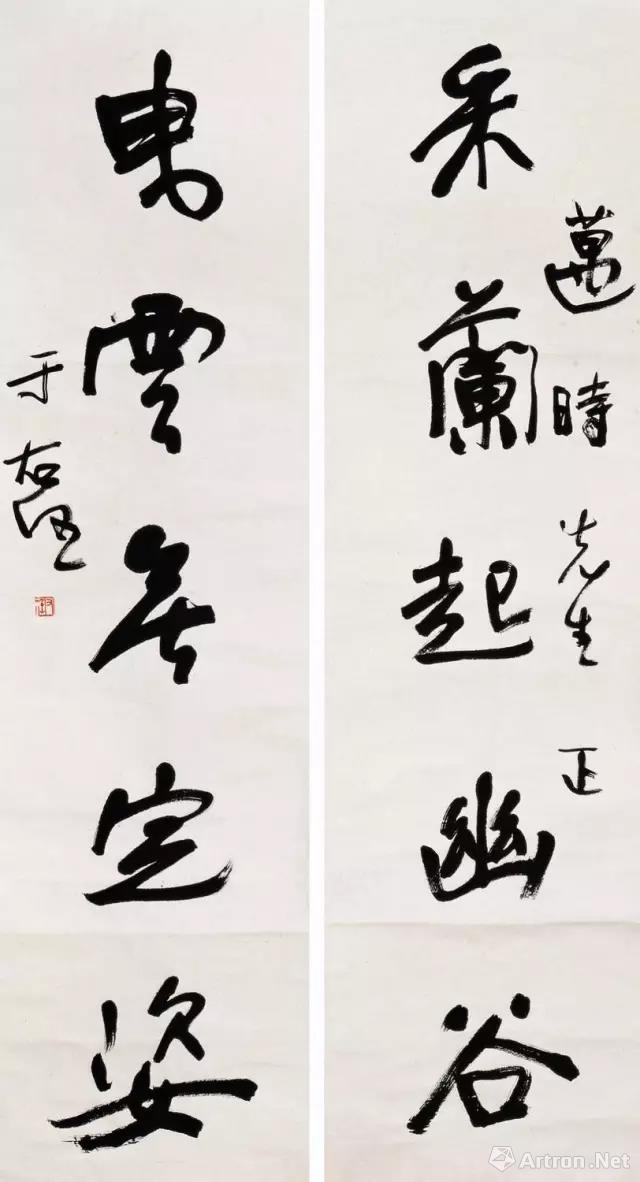 邁時先生正
采蘭起幽谷
東雲無定姿
于右任
Artron.Net